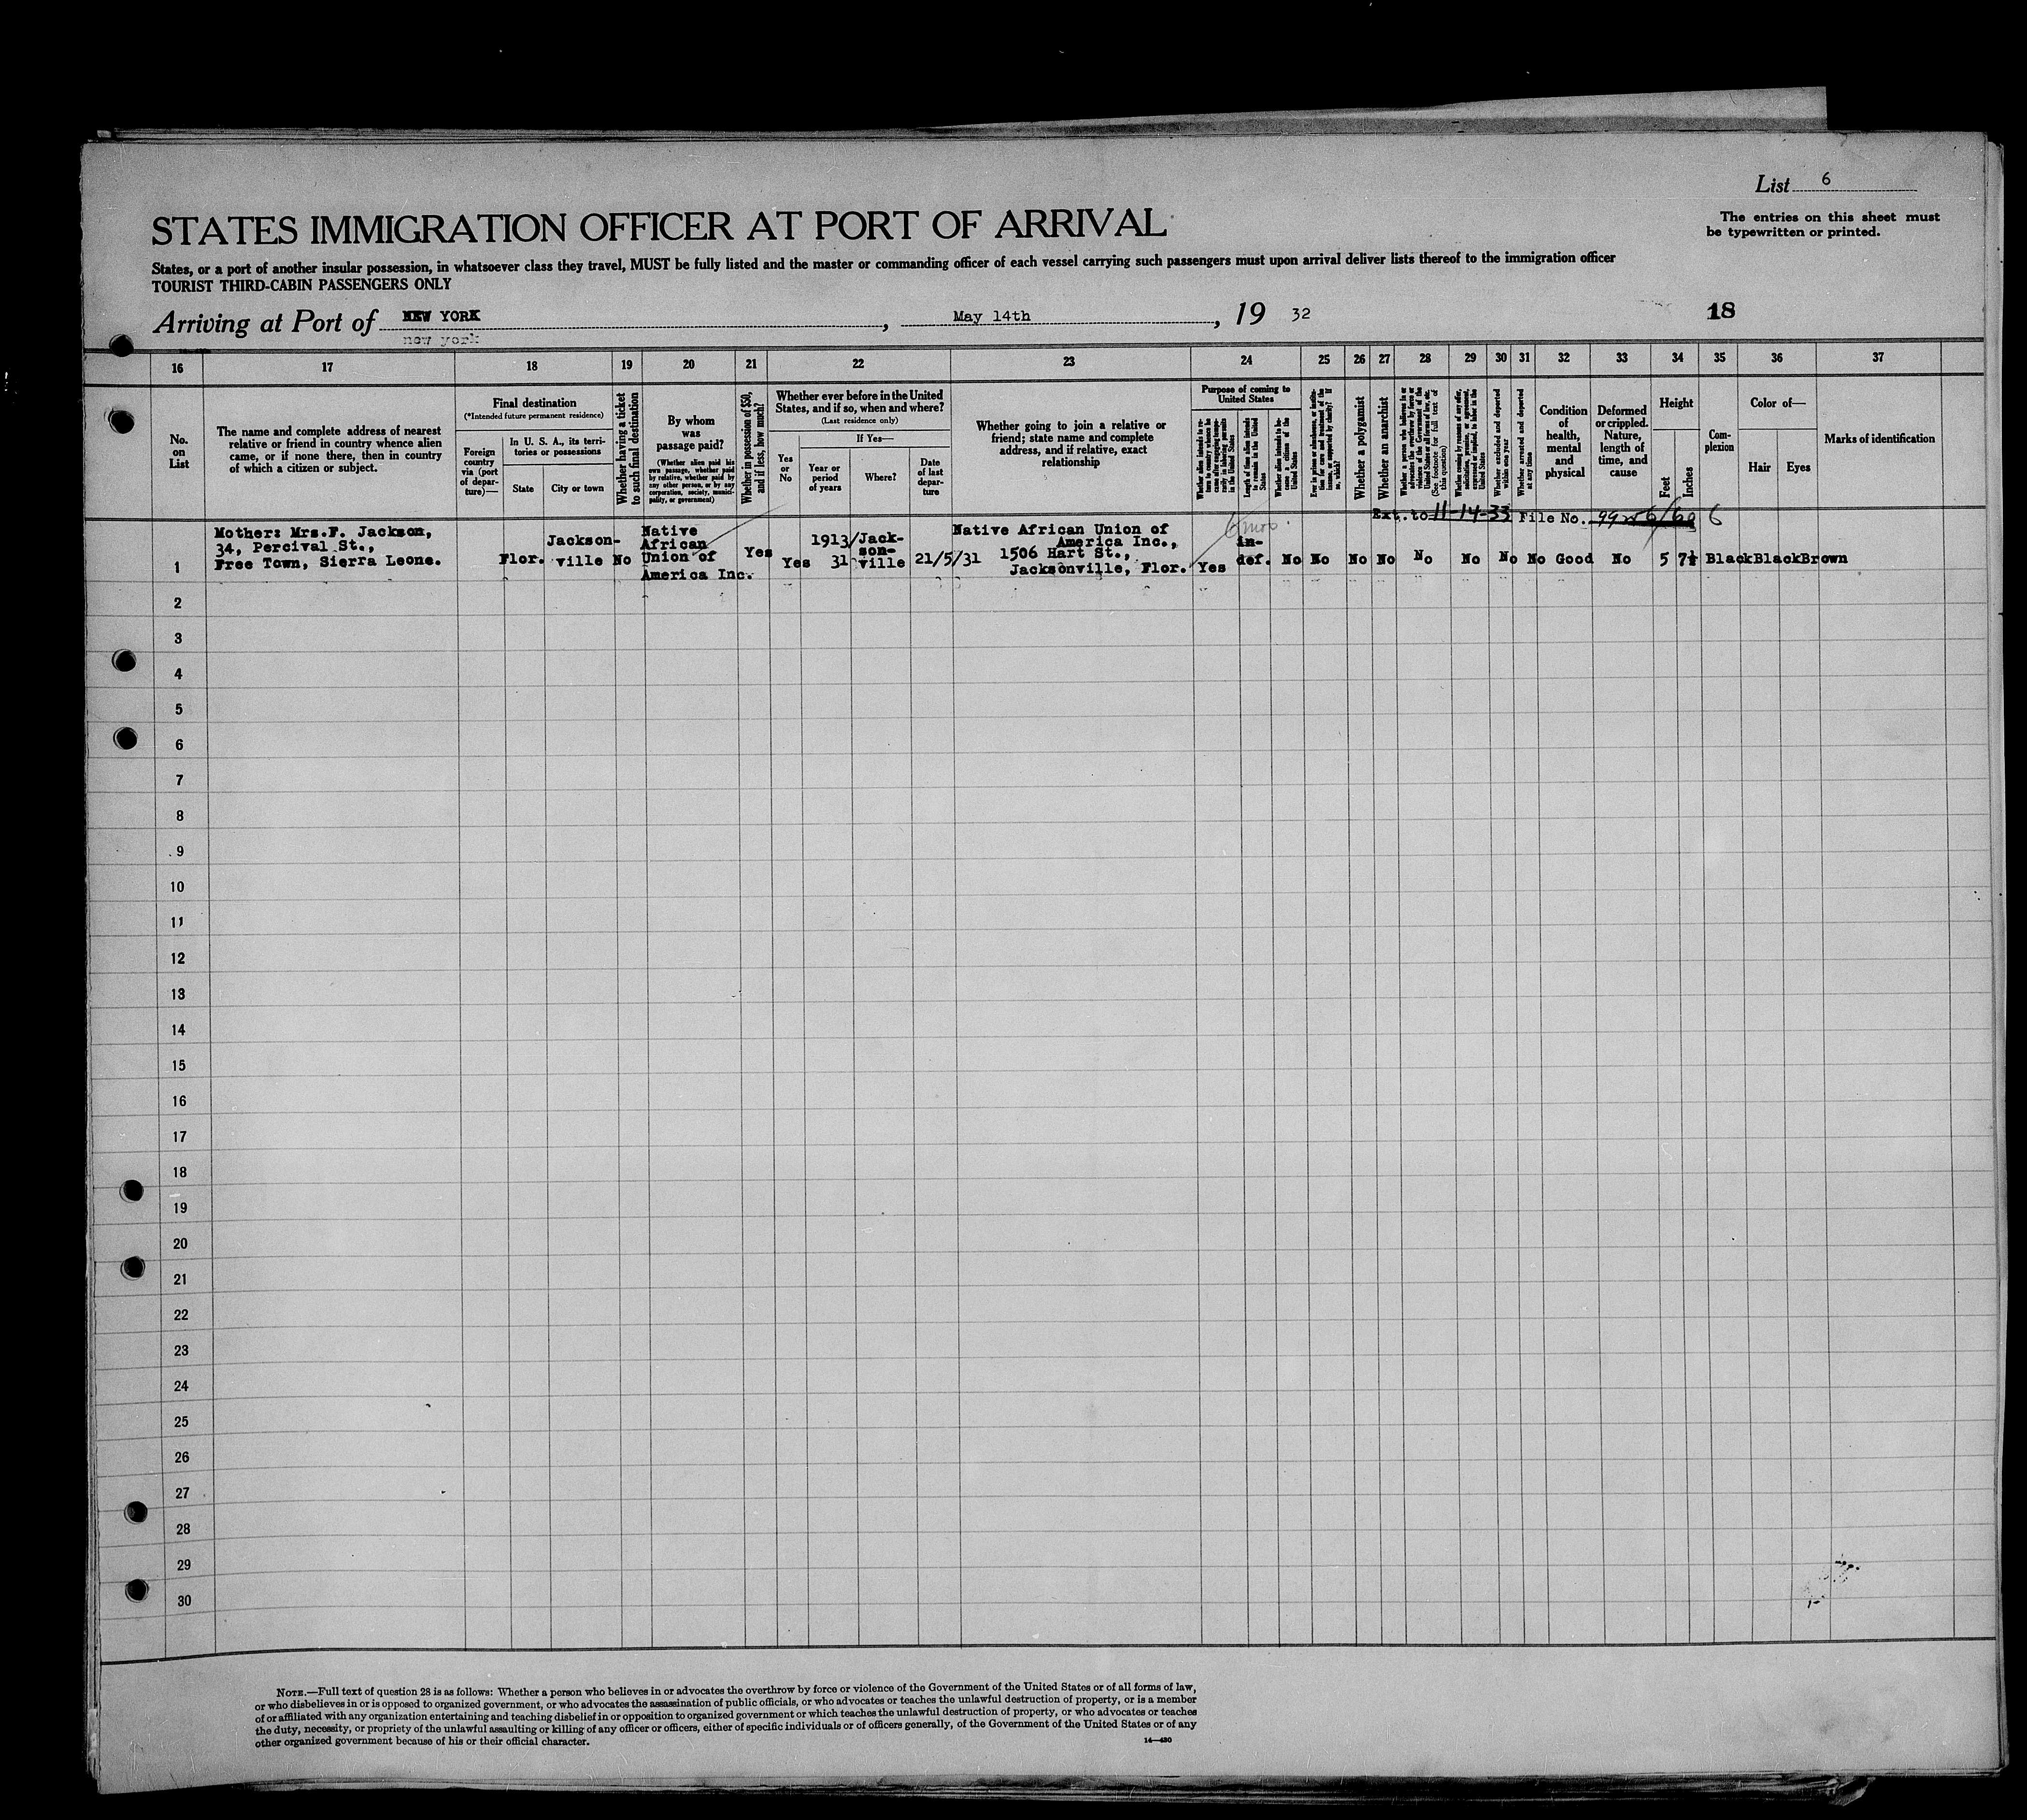 List 6
STATES IMMIGRATION OFFICER AT PORT OF ARRIVAL
The entries on this sheet must
be typewritten or printed.
States, or a port of another insular possession, in whatsoever class they travel, MUST be fully listed and the master or commanding officer of each vessel carrying such passengers must upon arrival deliver lists thereof to the immigration officer
TOURIST THIRD-CABIN PASSENGERS ONLY
Arriving at Port of NEW YORK, May 14th, 19 32
18
new york
16 17 18 19 20 21 22 23 24 25 26 27 28 29 30 31 32 33 34 35 36 37
No.
on
List
The name and complete address of nearest
relative or friend in country whence alien
came, or if none there, then in country
of which a citizen or subject.
Final destination
(*Intended future permanent residence)
Foreign
country
via (port
of depar-
ture)—
In U. S. A., its terri-
tories or possessions
State
City or town
Whether having a ticket
to such final destination
By whom
was
passage paid?
(Whether alien paid his
own passage, whether paid
by relative, whether paid by
any other person, or by any
corporation, society, munici-
pality, or government)
Whether in possession of $50,
and if less, how much?
Whether ever before in the United
States, and if so, when and where?
(Last residence only)
Yes
or
No
If Yes—
Year or
period
of years
Where?
Date
of last
depar-
ture
Whether going to join a relative or
friend; state name and complete
address, and if relative, exact
relationship
Purpose of coming to
United States
Whether alien intends to re-
turn to country whence he
came after engaging tempo-
rarily in laboring pursuits
in the United States
Length of time alien intends
to remain in the United
States
Whether alien intends to be-
come a citizen of the
United States
Ever in prison or almshouse, or institu-
tion for care and treatment of the
insane, or supported by charity? If
so, which?
Whether a polygamist
Whether an anarchist
Whether a person who believes in or
advocates the overthrow by force or
violence of the Government of the
United States or all forms of law, etc.
(See footnote for full text of
this question)
Whether coming by reason of any offer,
solicitation, promise, or agreement,
expressed or implied, to labor in the
United States
Whether excluded and deported
within one year
Whether arrested and deported
at any time
Condition
of
health,
mental
and
physical
Deformed
or crippled.
Nature,
length of
time, and
cause
Height
Feet
Inches
Com-
plexion
Color of—
Hair
Eyes
Marks of identification
Ext. to 11-14-33 File No.
6 mos.
1
Mother: Mrs.F. Jackson,
34, Percival St.,
Free Town, Sierra Leone.
Flor.
Jackson-
ville
No
Native
African
Union of
America Inc.
Yes
Yes
1913/
31
Jack-
son-
ville
21/5/31
Native African Union of
America Inc.,
1506 Hart St.,
Jacksonville, Flor.
Yes
in-
def.
No No No No No No No No Good No 5 7½ Black Black Brown
2
3
4
5
6
7
8
9
10
11
12
13
14
15
16
17
18
19
20
21
22
23
24
25
26
27
28
29
30
NOTE.—Full text of question 28 is as follows: Whether a person who believes in or advocates the overthrow by force or violence of the Government of the United States or of all forms of law,
or who disbelieves in or is opposed to organized government, or who advocates the assassination of public officials, or who advocates or teaches the unlawful destruction of property, or is a member
of or affiliated with any organization entertaining and teaching disbelief in or opposition to organized government or which teaches the unlawful destruction of property, or who advocates or teaches
the duty, necessity, or propriety of the unlawful assaulting or killing of any officer or officers, either of specific individuals or of officers generally, of the Government of the United States or of any
other organized government because of his or their official character.
14—430